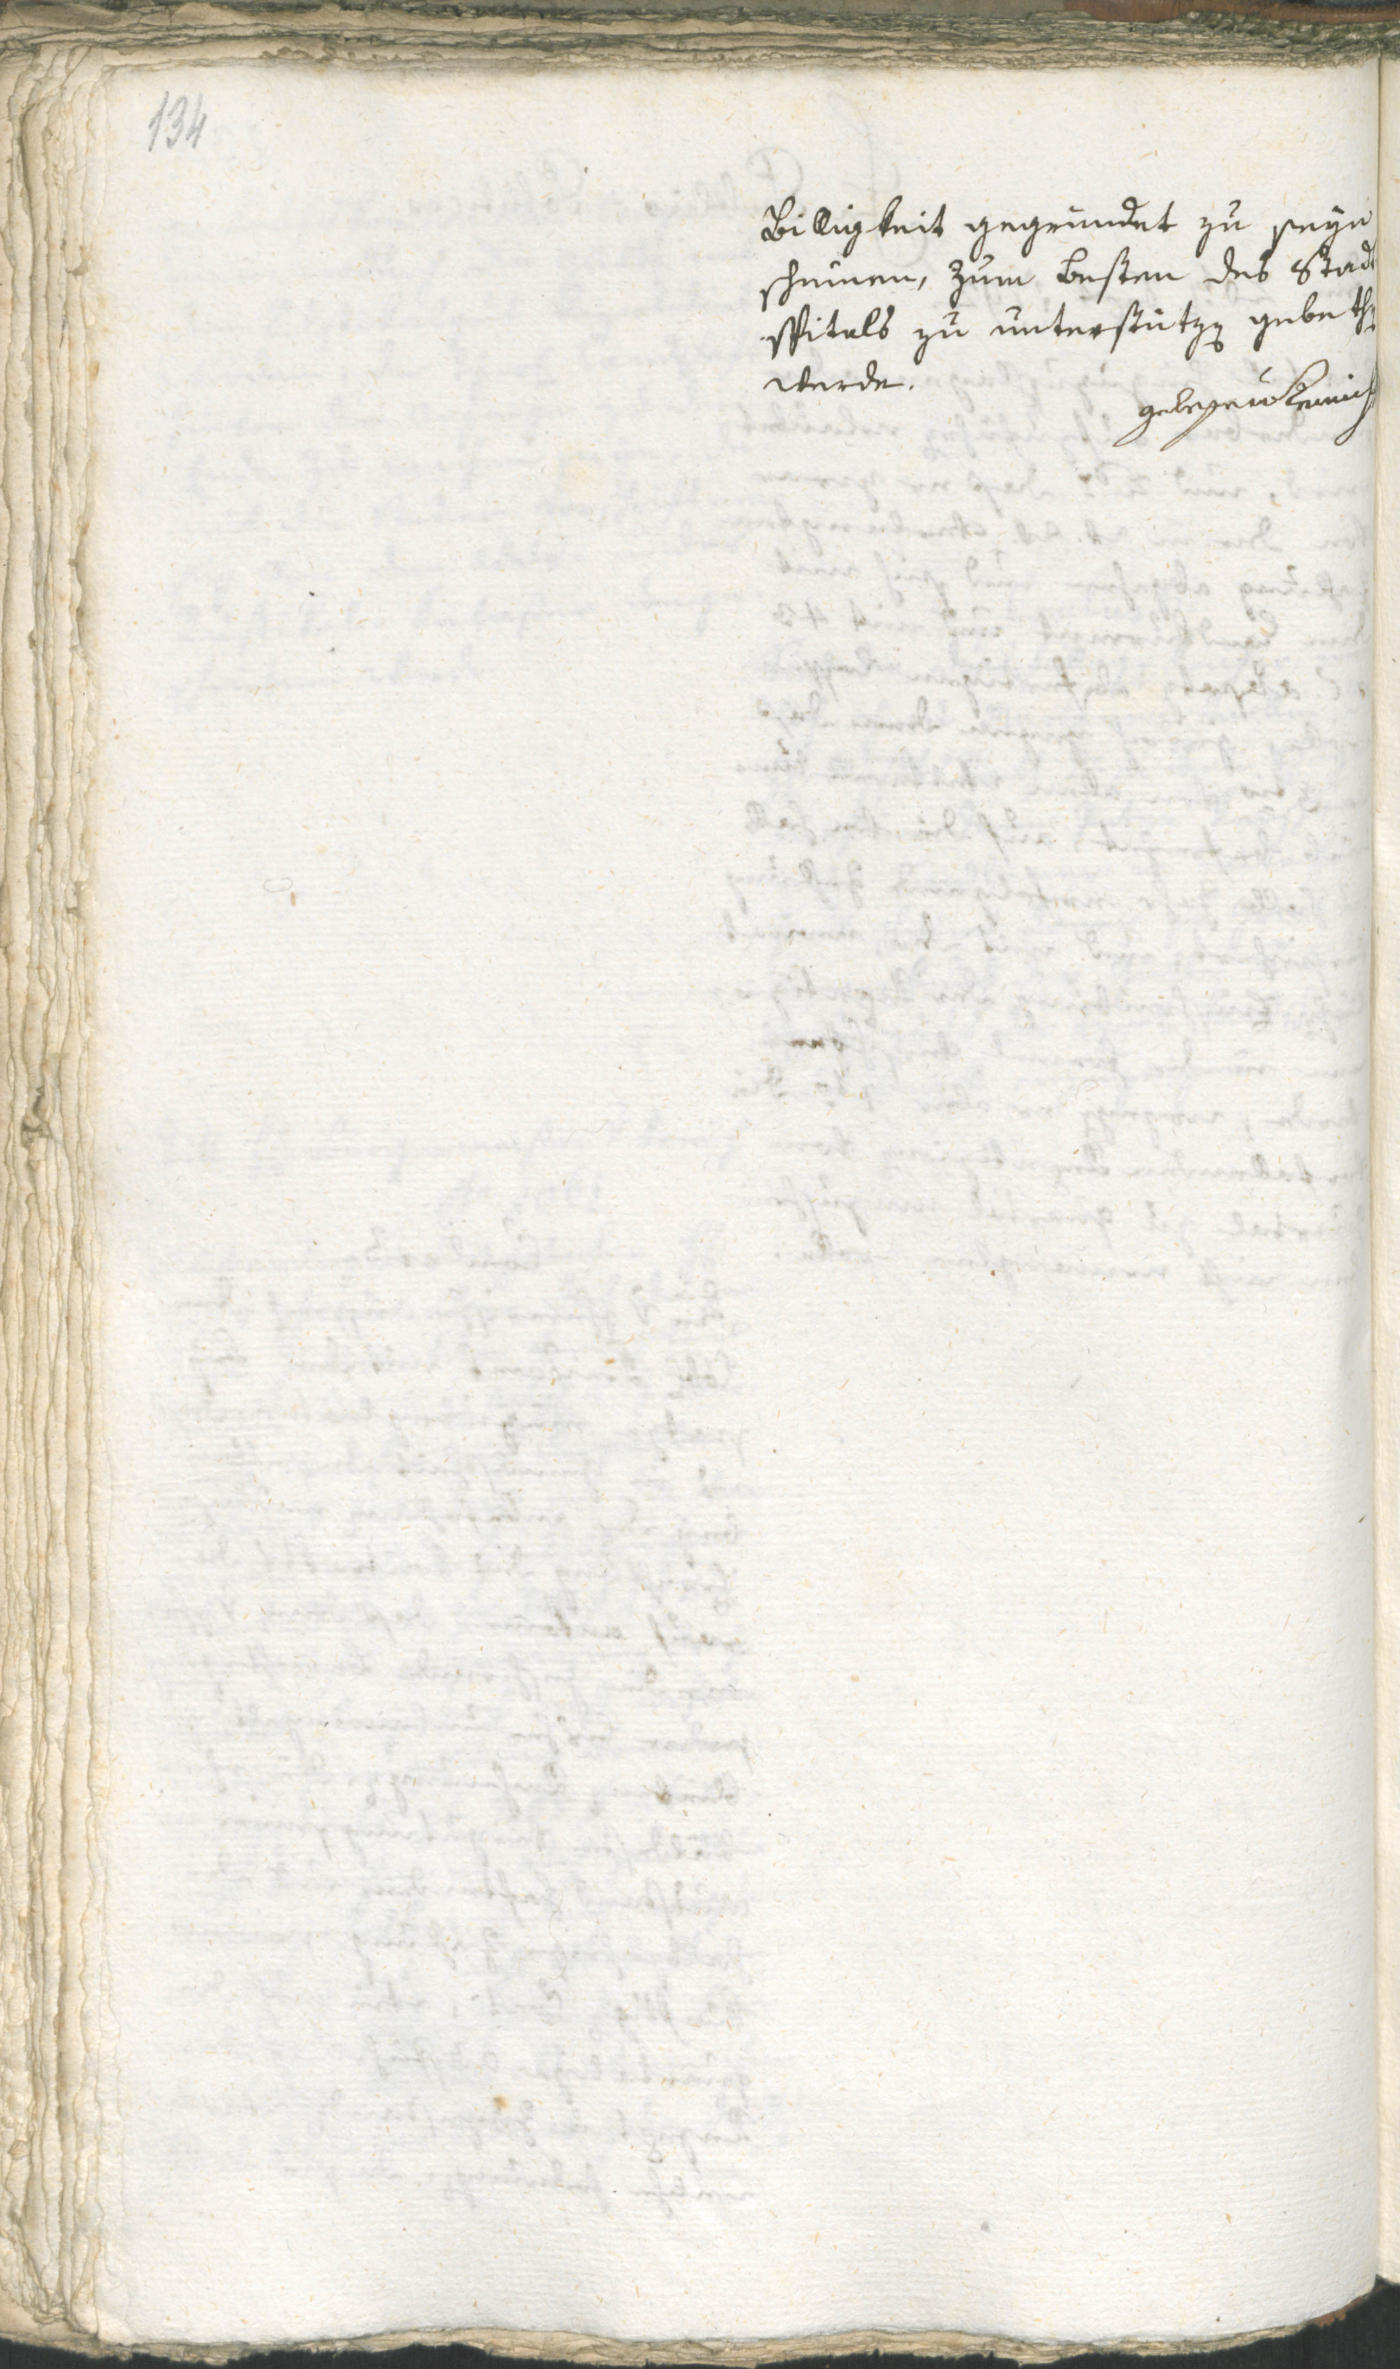 134
Billigkeit gegründet zu seyn
scheinen, zum Besten des Stadt
spitals zu unterstützen gebeth
werde.